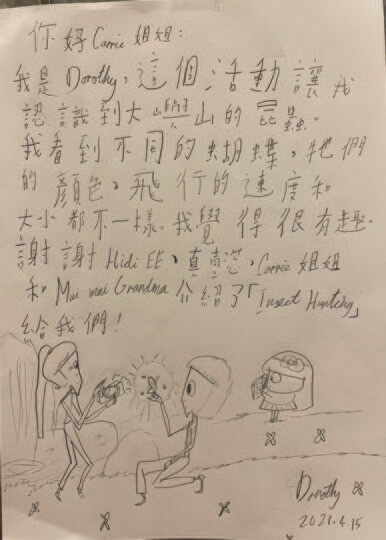 你好Carrie姐姐：
我是Dorothy。這個活動讓我
認識到大嶼山的昆蟲。
我看到不同的蝴蝶，牠們
的顏色、飛行的速度和
大小都不一樣。我覺得很有趣。
謝謝Hidi EE、真、Carrie姐姐
和Mai mai Grandma介紹了「Insect Hunting」
給我們！
Dorothy
2021.4.15